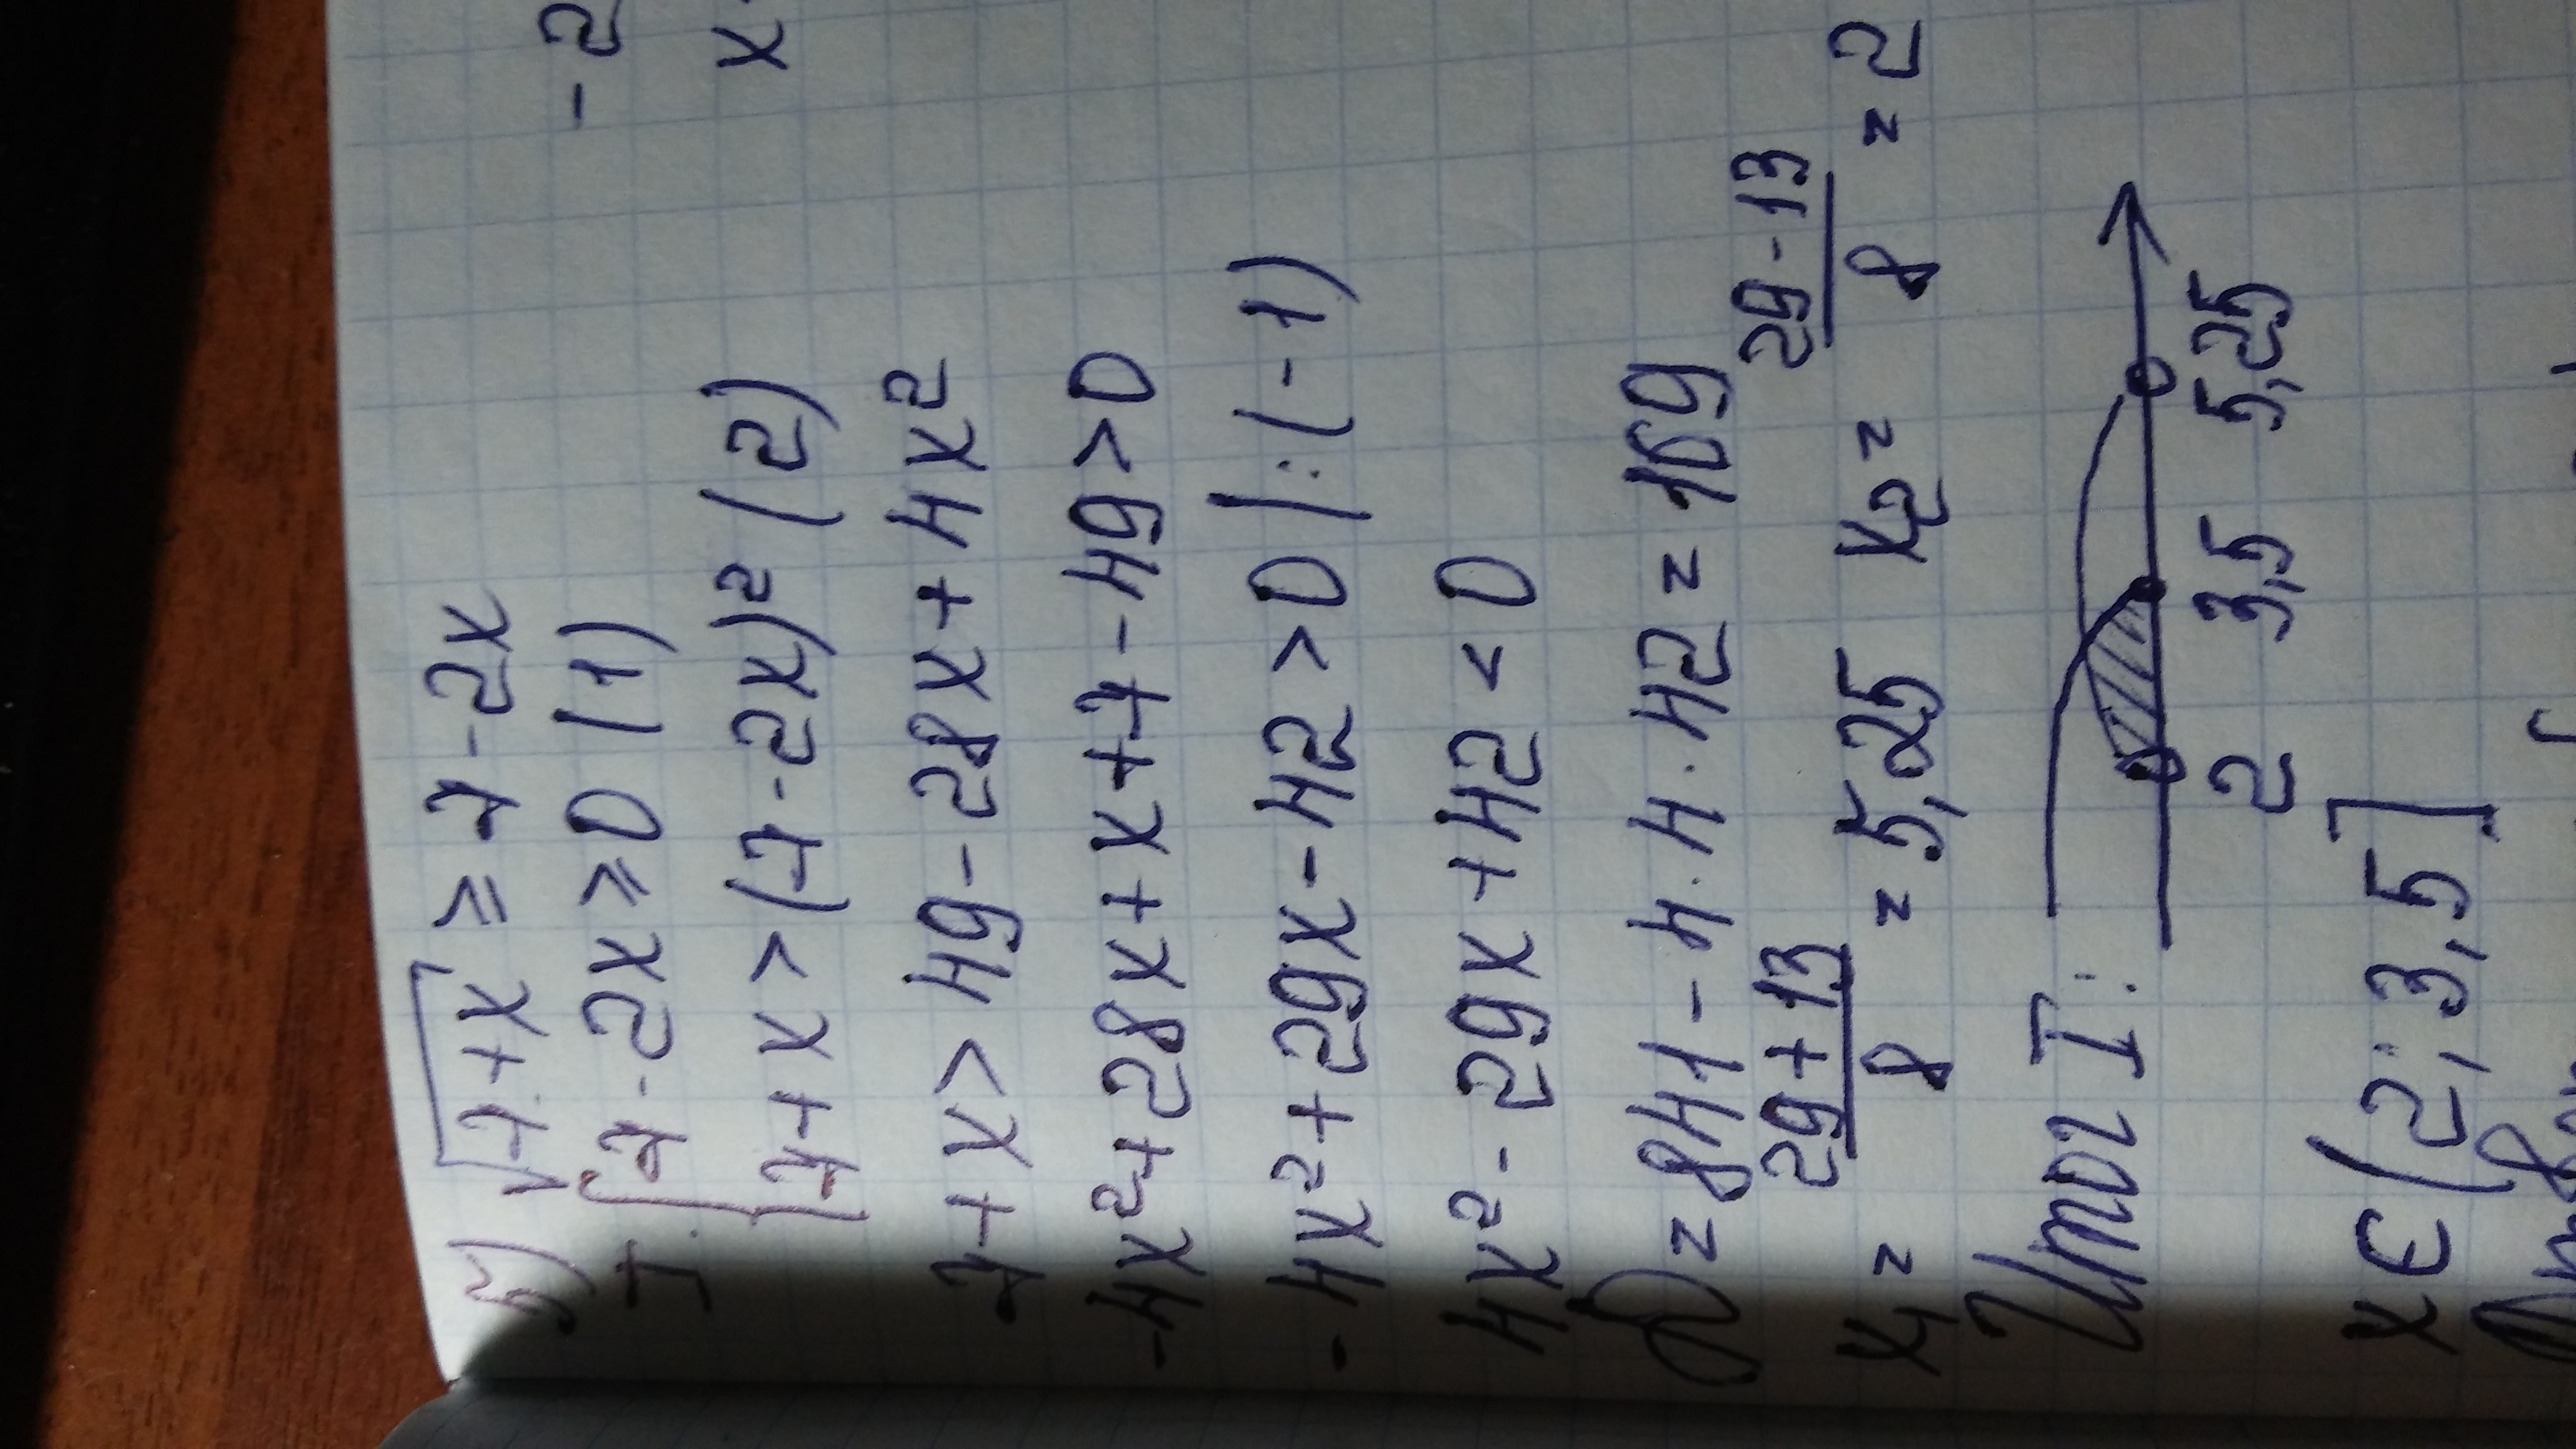 5) √7+x ≥ 7-2x
I. { 7-2x ≥ 0 (1)
7+x > (7-2x)² (2)
7+x > 49-28x+4x²
-4x²+28x+x+7-49>0
-4x²+29x-42>0 |:(-1)
4x²-29x+42<0
D=841-4·4·42=169
x₁= 29+13/8 = 5,25 x₂= 29-13/8 = 2
Итог I:
2 3,5 5,25
x∈(2; 3,5]
-2
x